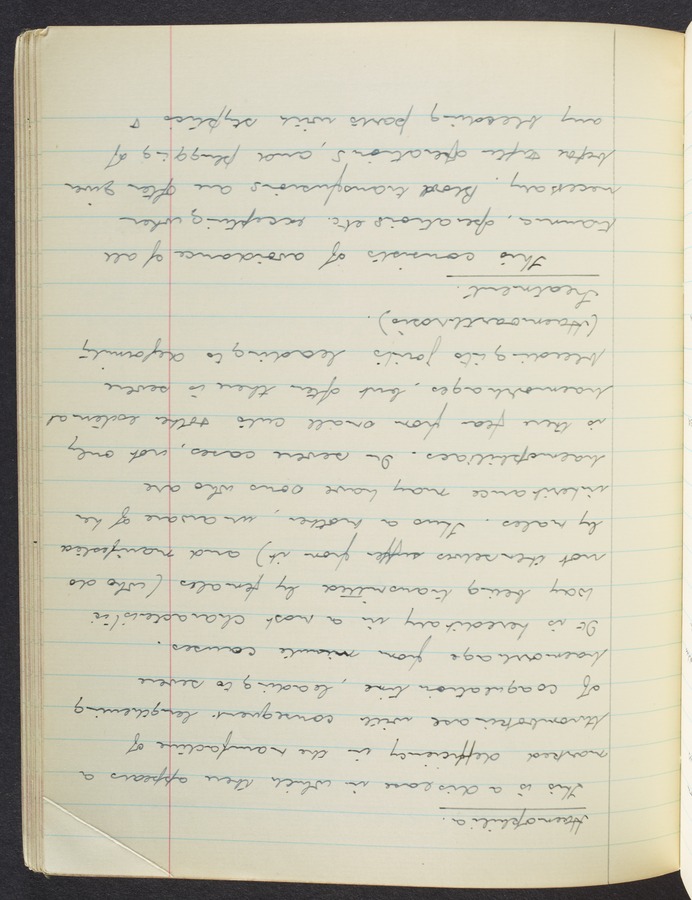 Haemophilia.
This is a disease in which there appears a
marked defficiency in the manufacture of
thrombokinase with consequent lengthening
of coagulation time, leading to severe
haemorrhage from minute causes.
It is hereditary in a most characteristic
way being transmitted by females (who do
not themselves suffer from it) and manifested
by males. Thus a mother, unaware of her
inheritance may have sons who are
haemophiliacs. In severe cases, not only
is there fear from small cuts & other external
haemorrhages, but often there is severe
bleeding into joints leading to deformity
(Haemoarthrosis).
Treatment.
This consists of avoidance of all
trauma, operations etc. excepting when
necessary. Blood transfusions are often given
before & after operations, and plugging of
any bleeding parts with styptics &